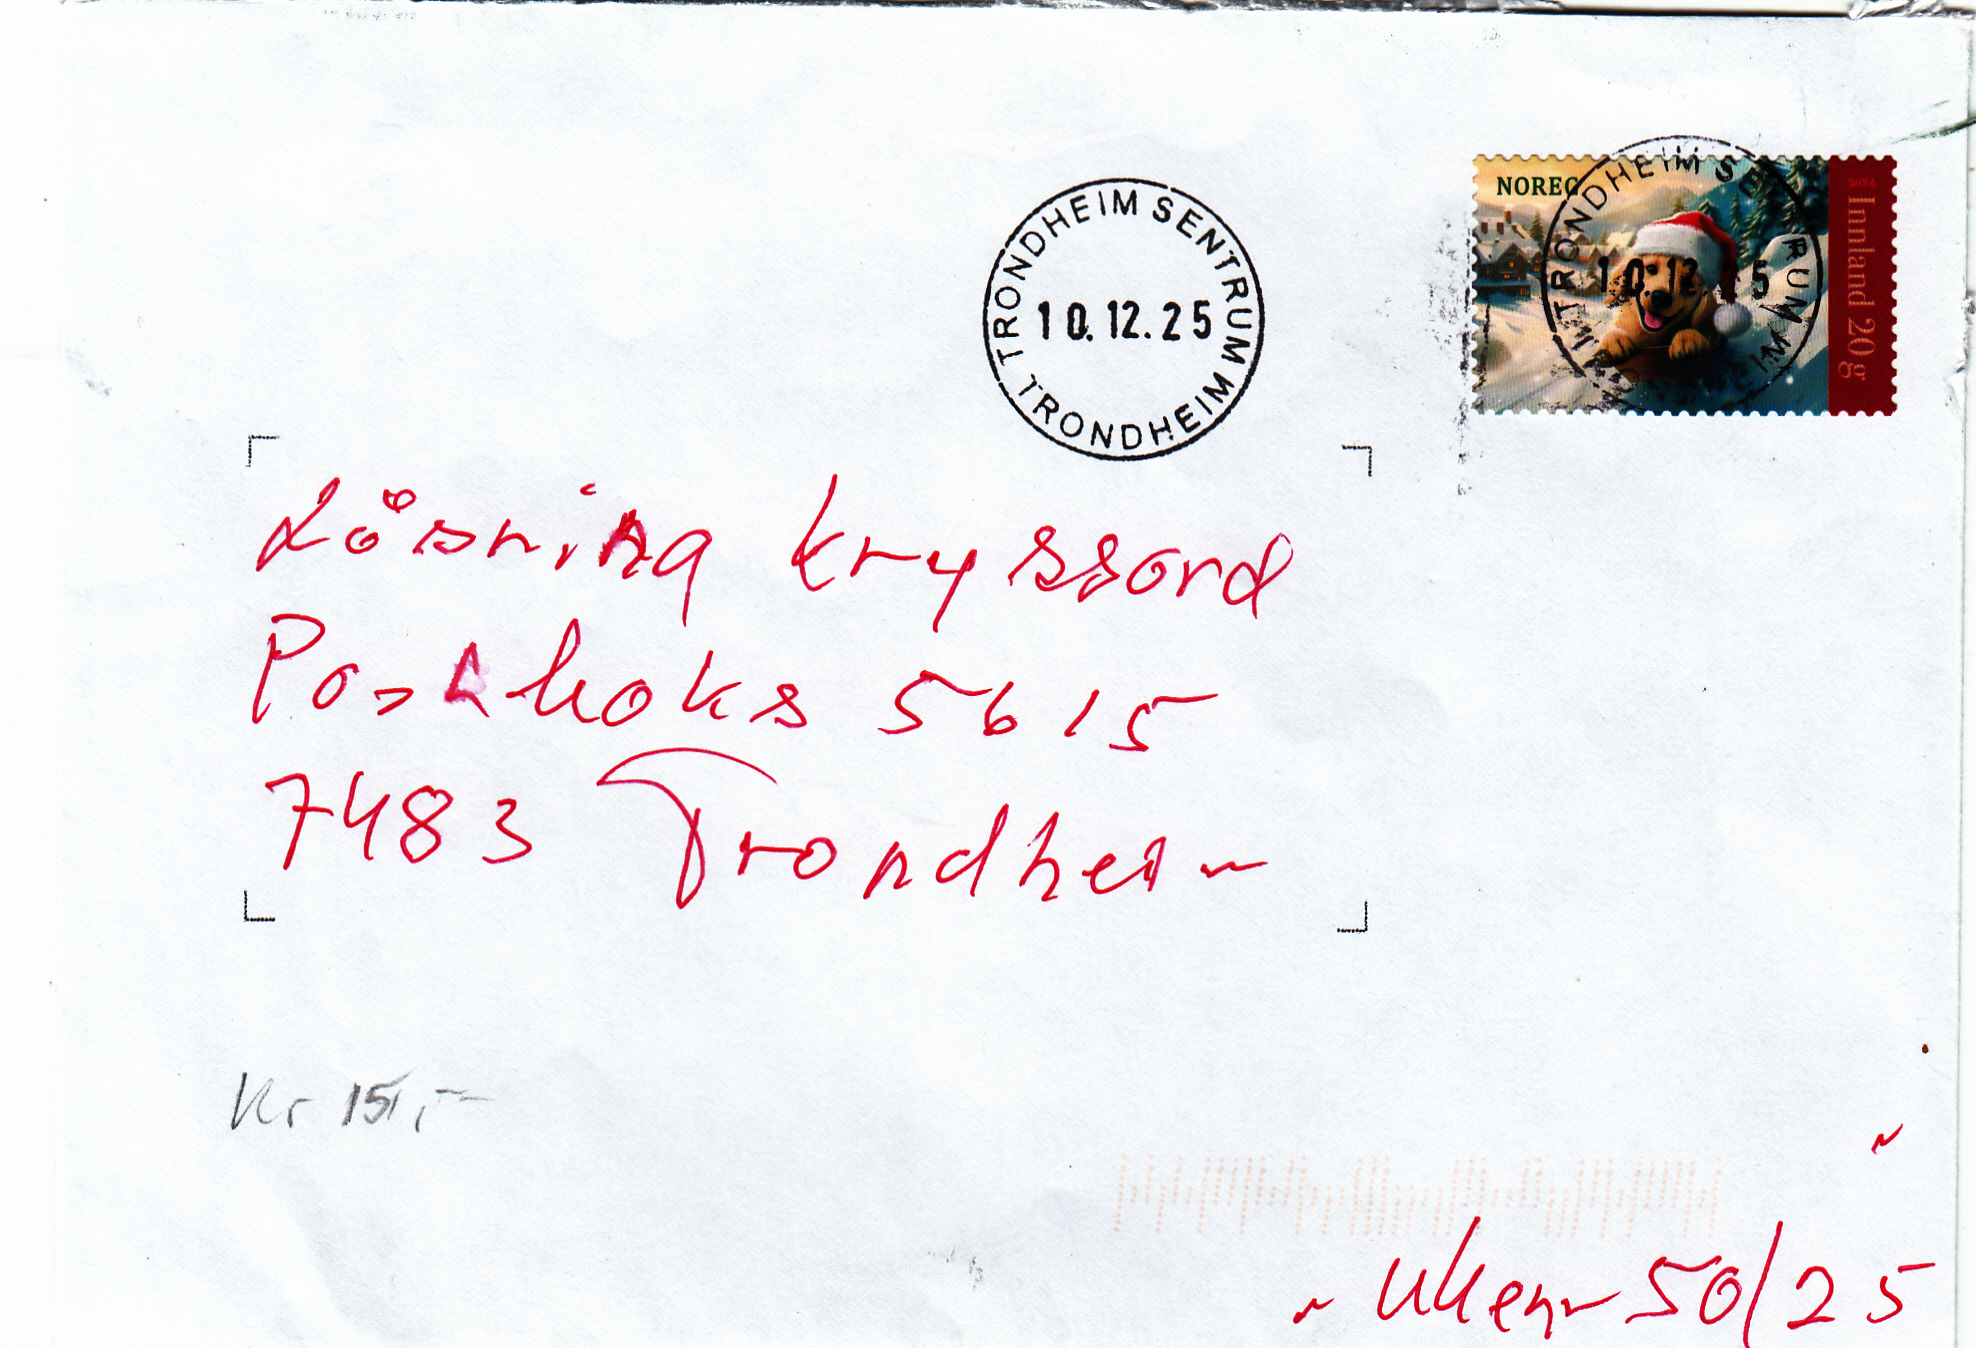 TRONDHEIM SENTRUM
10.12.25
TRONDHEIM
NOREG
2024
Innland 20 g
TRONDHEIM SENTRUM
10.12.25
TRONDHEIM
Løsning kryssord
Postboks 5615
7483 Trondheim
Kr 15,-
Ukenr 50/25